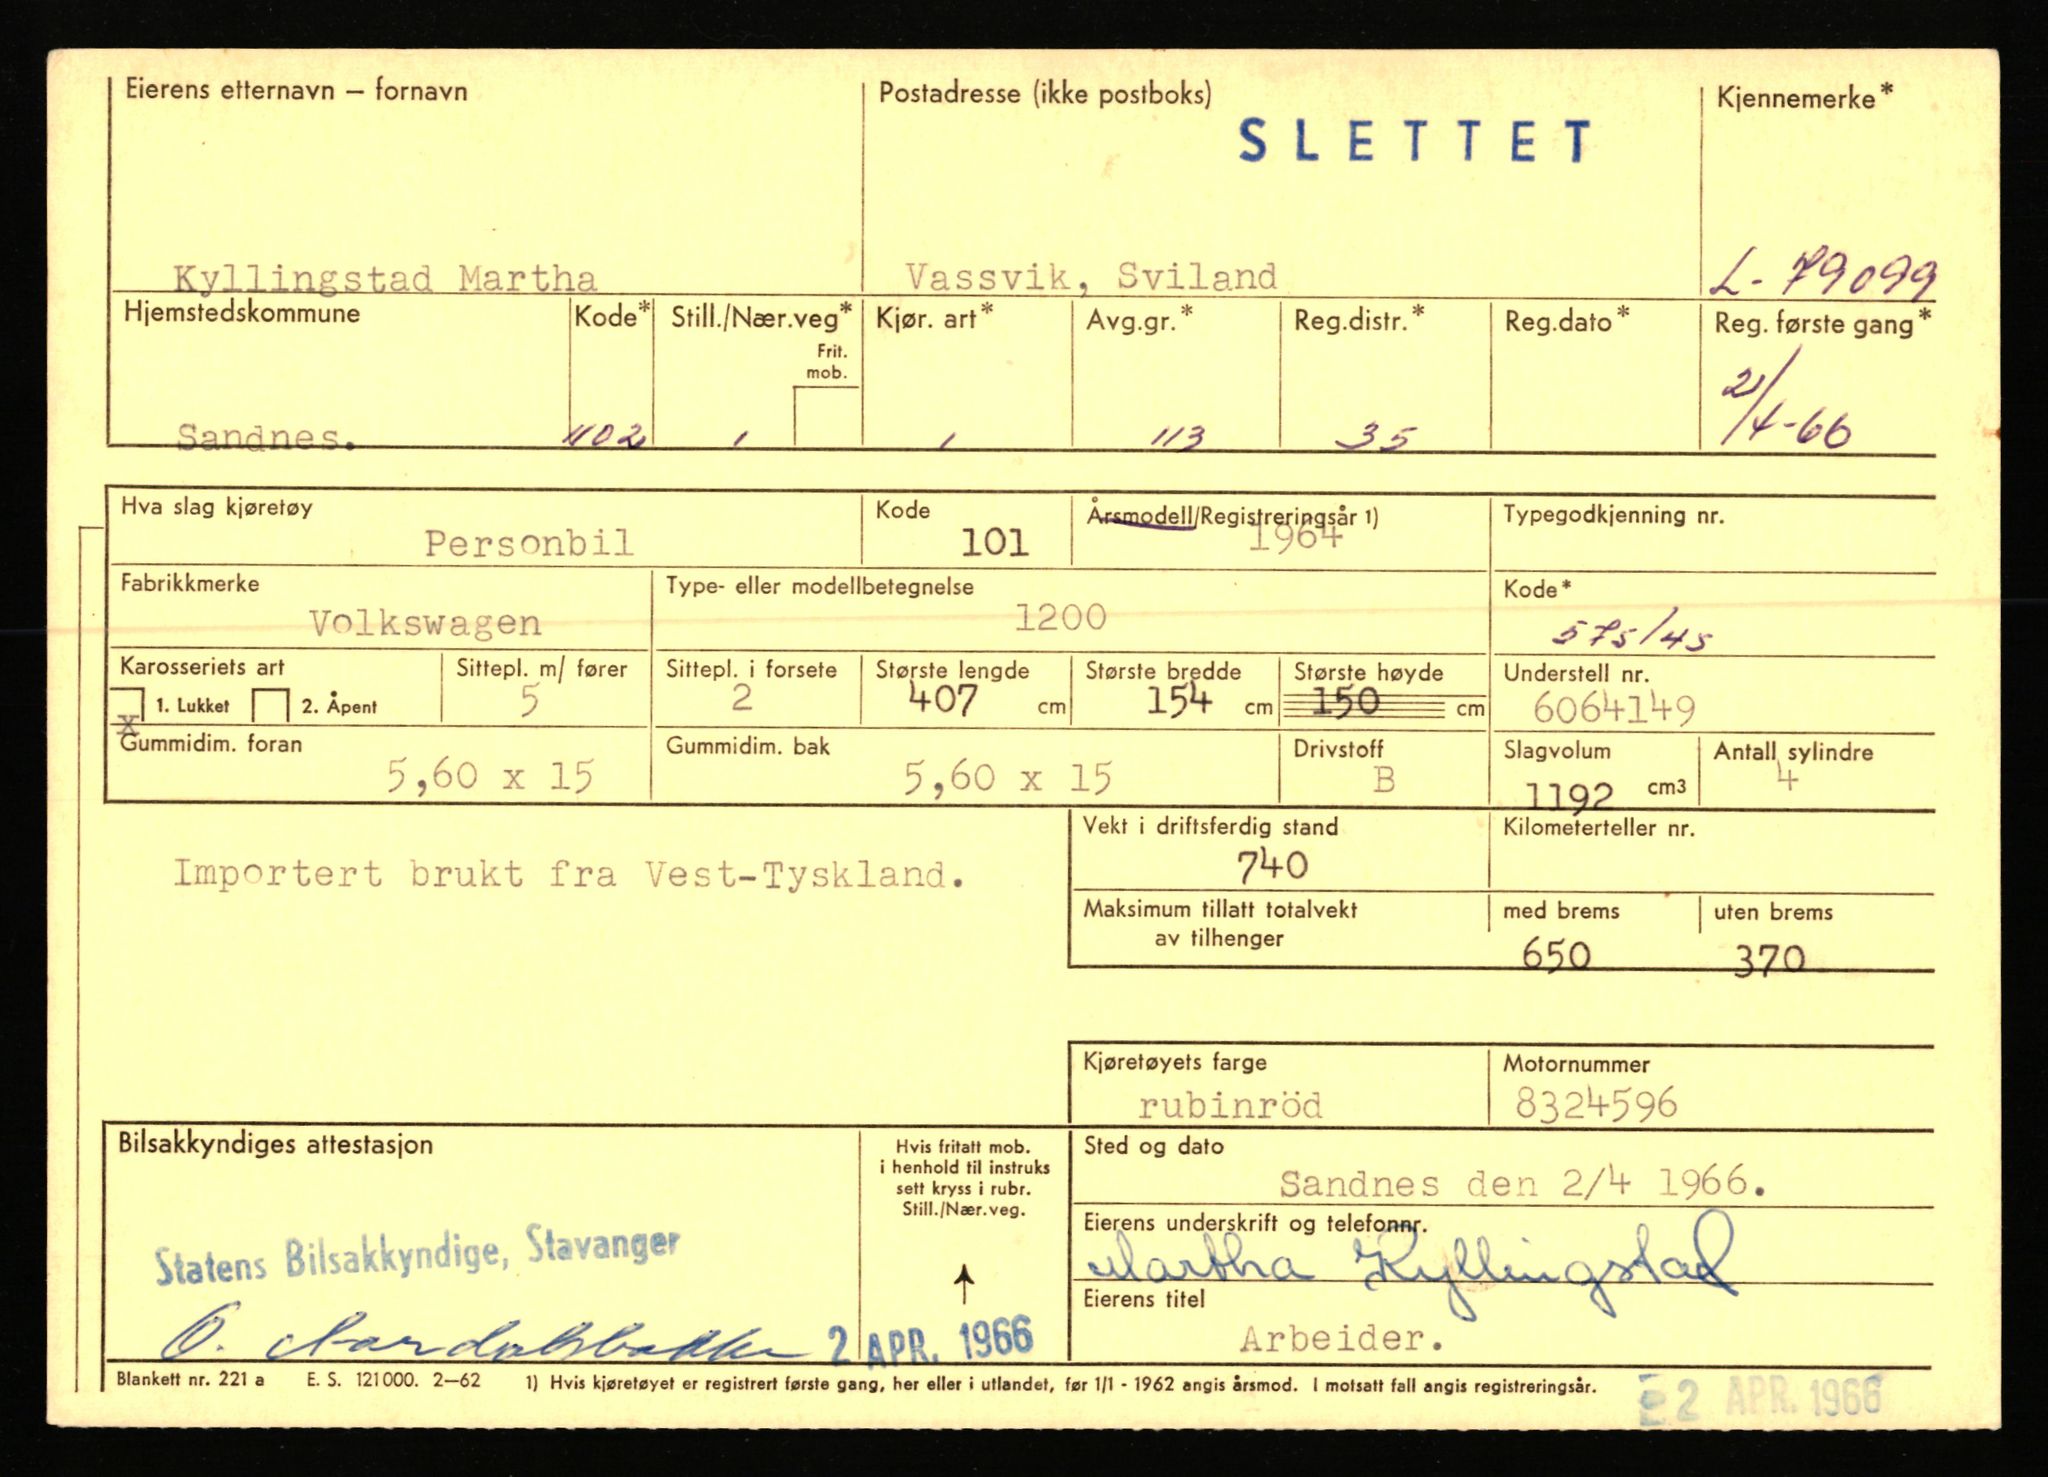 Eierens etternavn – fornavn
Postadresse (ikke postboks)
Kjennemerke*
SLETTET
Kyllingstad Martha
Vassvik, Sviland
L-79099
Hjemstedskommune
Kode*
Still./Nær.veg*
Kjør. art*
Avg.gr.*
Reg.distr.*
Reg.dato*
Reg. første gang*
Frit.
mob.
Sandnes.
1102
1
1
113
35
2/4-66
Hva slag kjøretøy
Kode
Årsmodell/Registreringsår 1)
Typegodkjenning nr.
Personbil
101
1964
Fabrikkmerke
Type- eller modellbetegnelse
Kode*
Volkswagen
1200
575/45
Karosseriets art
Sittepl. m/ fører
Sittepl. i forsete
Største lengde
Største bredde
Største høyde
Understell nr.
x 1. Lukket
2. Åpent
5
2
407 cm
154 cm
150 cm
6064149
Gummidim. foran
Gummidim. bak
Drivstoff
Slagvolum
Antall sylindre
5,60 x 15
5,60 x 15
B
1192 cm3
4
Vekt i driftsferdig stand
Kilometerteller nr.
740
Importert brukt fra Vest-Tyskland.
Maksimum tillatt totalvekt
av tilhenger
med brems
uten brems
650
370
Kjøretøyets farge
Motornummer
rubinröd
8324596
Bilsakkyndiges attestasjon
Hvis fritatt mob.
i henhold til instruks
sett kryss i rubr.
Still./Nær.veg.
Sted og dato
Sandnes den 2/4 1966.
Eierens underskrift og telefonnr.
Martha Kyllingstad
Statens Bilsakkyndige, Stavanger
2 APR. 1966
Eierens titel
Arbeider.
Blankett nr. 221 a
E. S. 121000. 2–62
1) Hvis kjøretøyet er registrert første gang, her eller i utlandet, før 1/1 - 1962 angis årsmod. I motsatt fall angis registreringsår.
2 APR. 1966